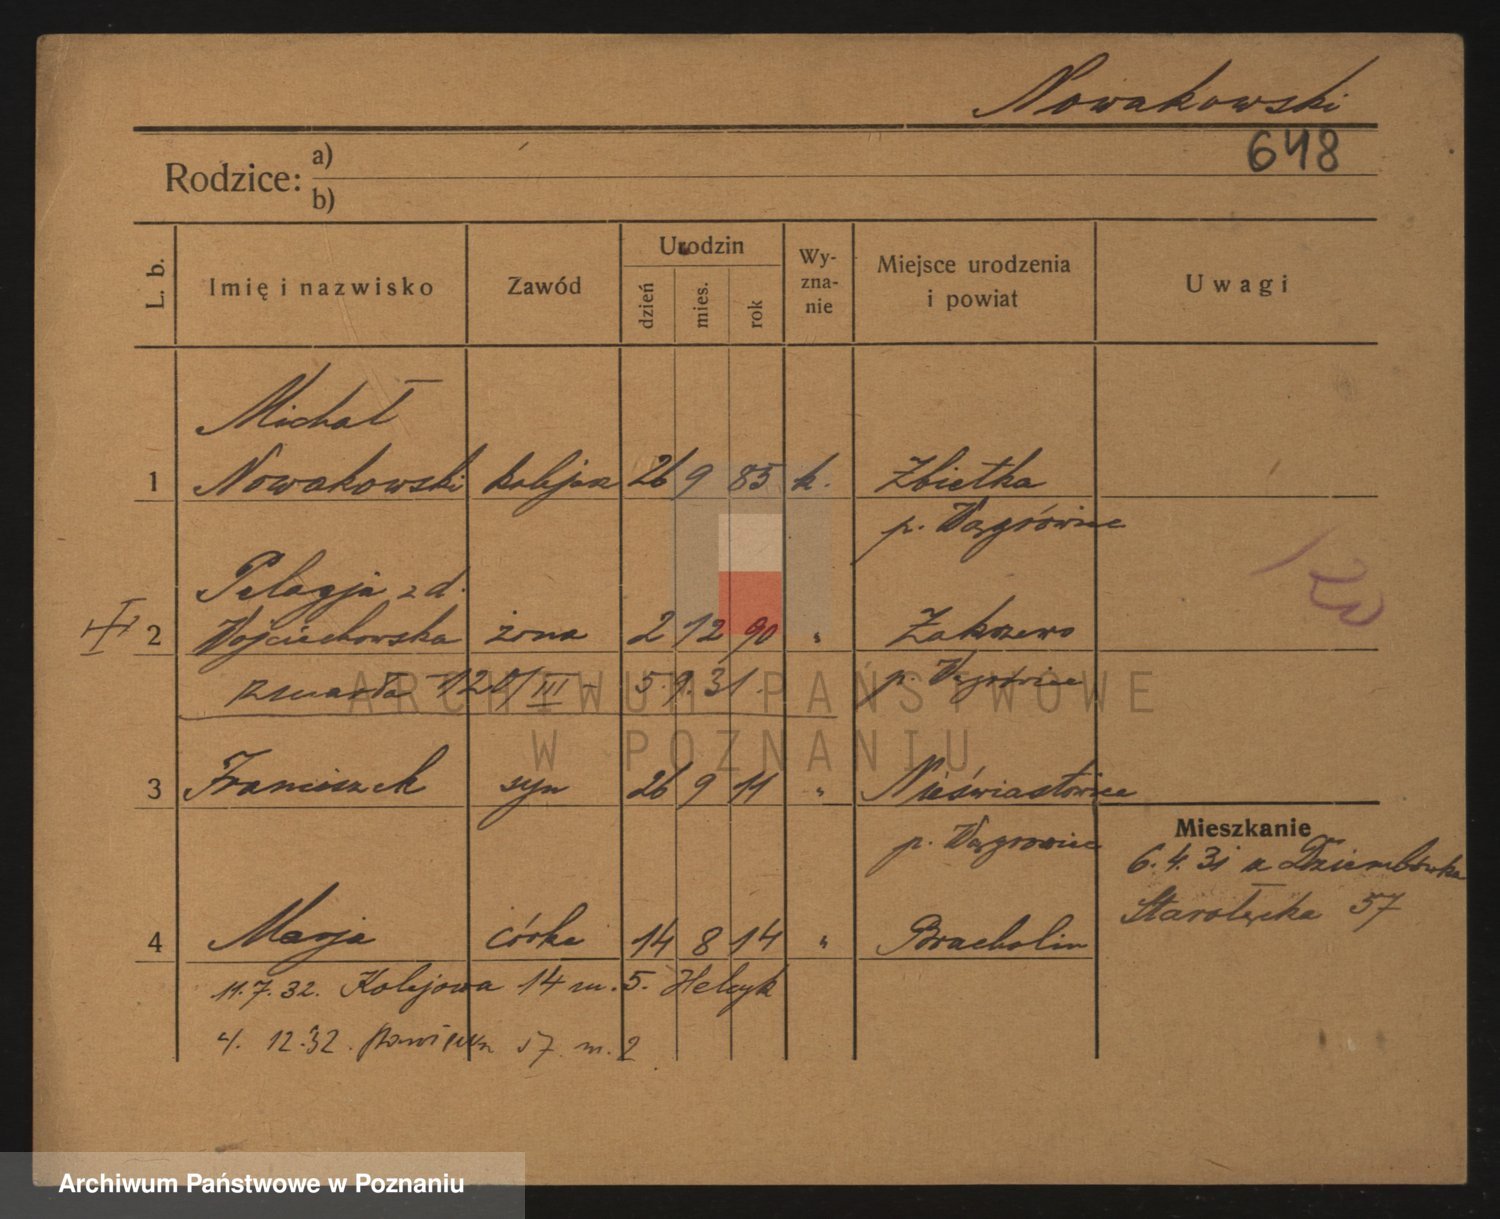 Nowakowski
648
Rodzice: a)
b)
L. b. Imię i nazwisko Zawód Urodzin dzień mies. rok Wy-zna-nie Miejsce urodzenia i powiat Uwagi
Michał
1 Nowakowski kolejarz 26 9 85 k. Zbietka
p. Wągrówiec
Pelagja z d.
2 Wojciechowska żona 2 12 90 " Zakrzewo
zmarła 120/III - 5.1.31. p. Wągrówiec
3 Franciszek syn 26 9 11 " Nieświastowice
p. Wągrowiec
Mieszkanie
6.4.31 z Dziembówka
Starołęcka 57
4 Marja córka 14 8 14 " Bracholin
11.7.32. Kolejowa 14 m. 5.
4. 12.32. 57 m. 2
ARCHIWUM PAŃSTWOWE
W POZNANIU
Archiwum Państwowe w Poznaniu